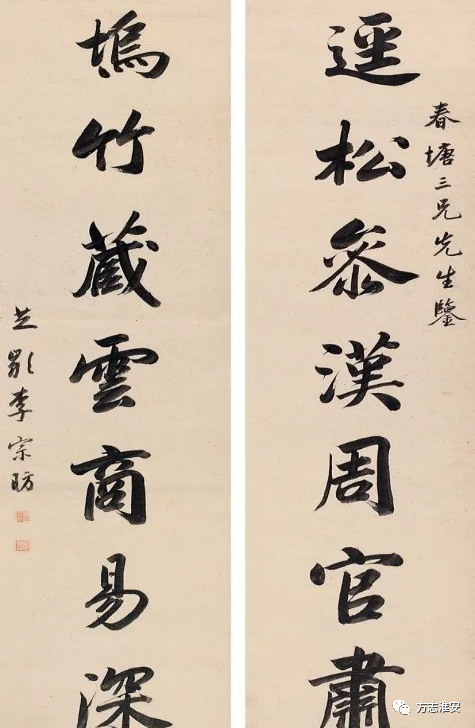 春塘三兄先生鑒
逕松參漢周官肅
塢竹藏雲商易深
芝齡李宗昉
方志淮安